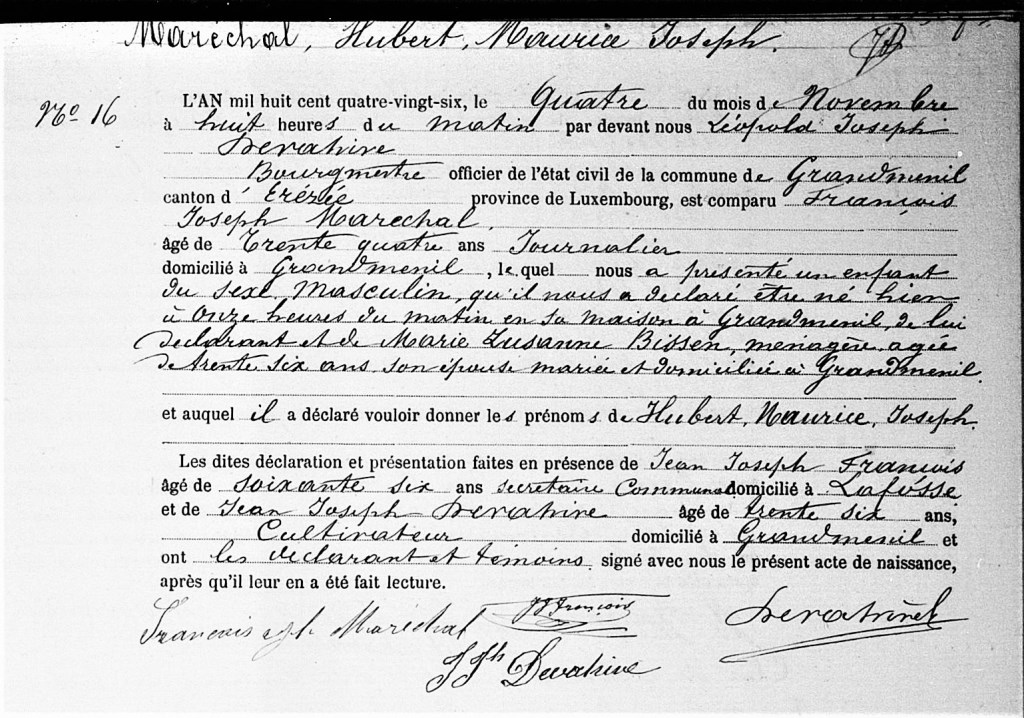 Maréchal, Hubert, Maurice Joseph.
No 16
L'AN mil huit cent quatre-vingt-six, le Quatre du mois de Novembre
à huit heures du matin par devant nous Léopold Joseph
Devahive
Bourgmestre officier de l'état civil de la commune de Grandmenil
canton d' Erézée province de Luxembourg, est comparu François
Joseph Marechal,
âgé de Trente quatre ans Journalier
domicilié à Grandmenil, lequel nous a présenté un enfant
du sexe Masculin, qu'il nous a declaré être né hier
à onze heures du matin en sa maison à Grandmenil, de lui
declarant et de Marie Susanne Bissen, menagère, agée
de trente six ans son épouse mariée et domiciliée à Grandmenil.
et auquel il a déclaré vouloir donner les prénoms de Hubert, Maurice, Joseph.
Les dites déclaration et présentation faites en présence de Jean Joseph François
âgé de soixante six ans secretaire Communal domicilié à Lafosse
et de Jean Joseph Devahive âgé de trente six ans,
Cultivateur domicilié à Grandmenil et
ont les declarant et témoins signé avec nous le présent acte de naissance,
après qu'il leur en a été fait lecture.
François Jh Maréchal JJ François
J Jh Devahive